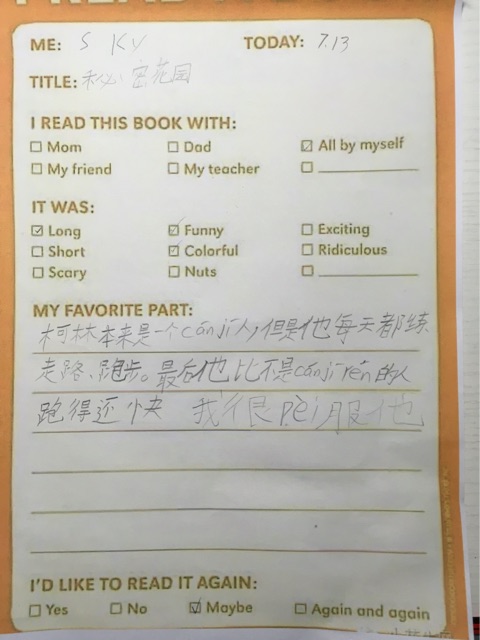 ME: SKY TODAY: 7.13
TITLE: 秘密花园
I READ THIS BOOK WITH:
☐ Mom ☐ Dad ☑ All by myself
☐ My friend ☐ My teacher ☐
IT WAS:
☑ Long ☑ Funny ☐ Exciting
☐ Short ☑ Colorful ☐ Ridiculous
☐ Scary ☐ Nuts ☐
MY FAVORITE PART:
柯林本来是一个cánjí人,但是他每天都练
走路、跑步。最后他比不是cánjí rén的人
跑得还快 我很pèi服他
I'D LIKE TO READ IT AGAIN:
☐ Yes ☐ No ☑ Maybe ☐ Again and again